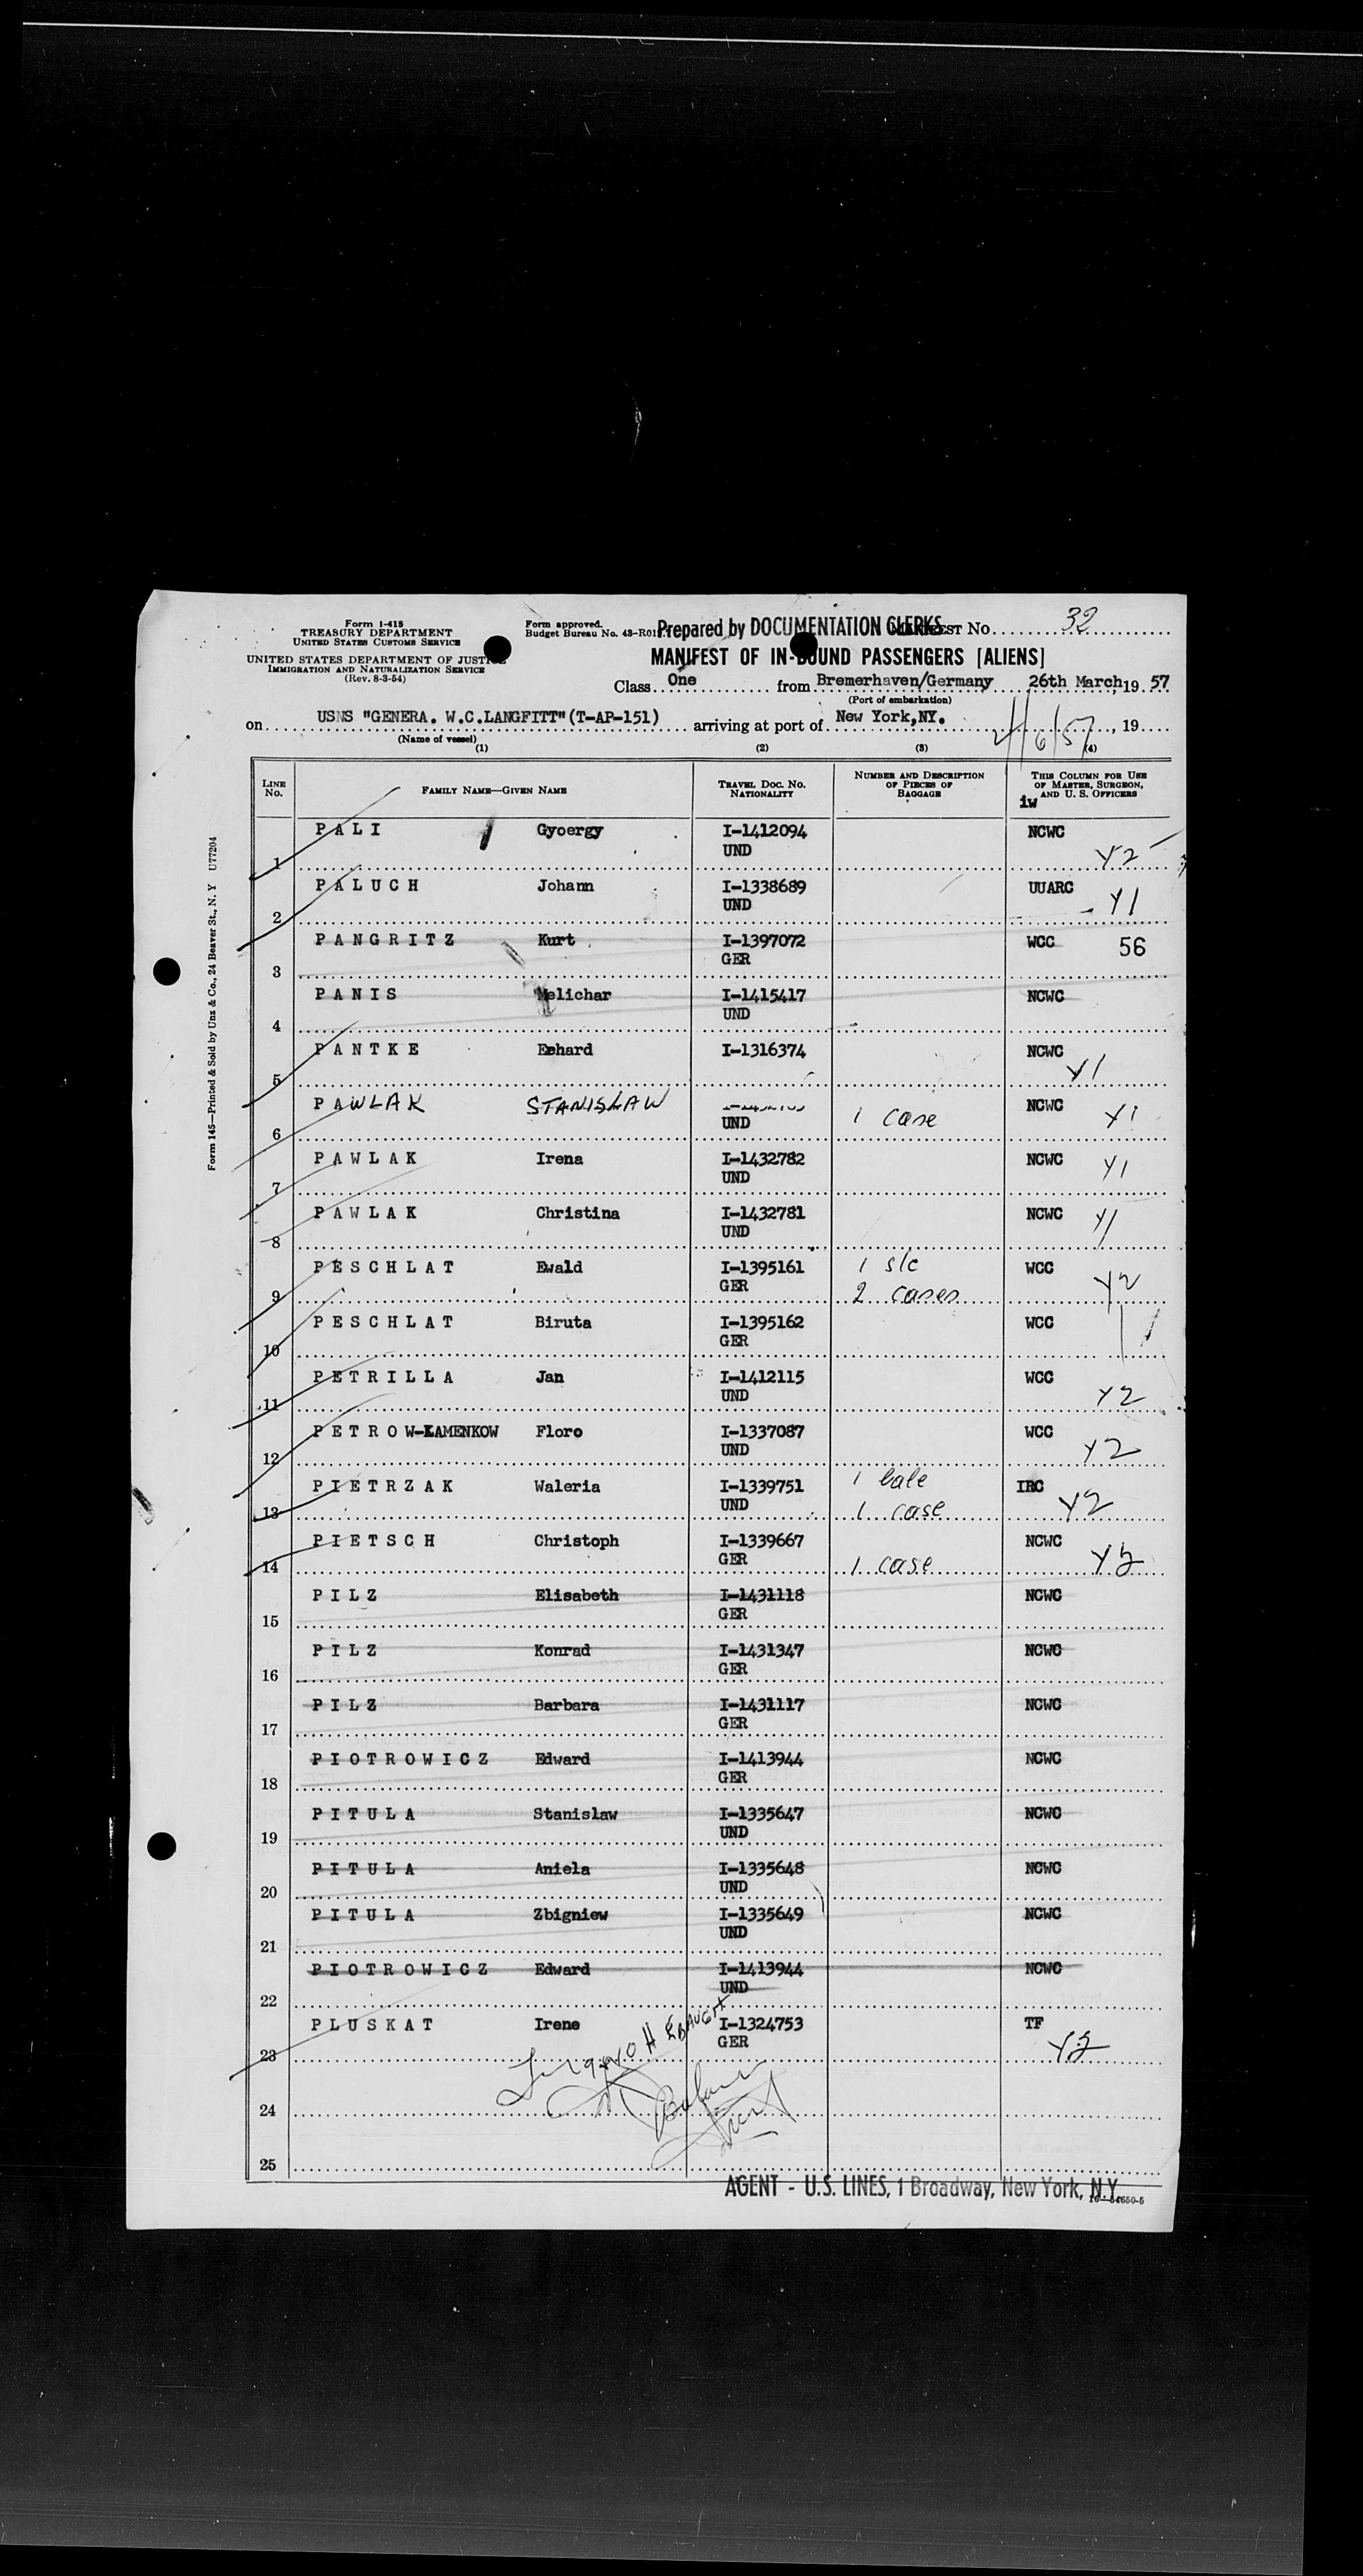 Form I-415
TREASURY DEPARTMENT
UNITED STATES CUSTOMS SERVICE
UNITED STATES DEPARTMENT OF JUSTICE
IMMIGRATION AND NATURALIZATION SERVICE
(Rev. 8-3-54)
Form approved.
Budget Bureau No. 43-R01
Prepared by DOCUMENTATION CLERKS
MANIFEST No. 32
MANIFEST OF IN-BOUND PASSENGERS [ALIENS]
Class One from Bremerhaven/Germany 26th March, 19 57
(Port of embarkation)
on USNS "GENERA. W.C.LANGFITT"(T-AP-151) arriving at port of New York,NY. 4/6/57, 19
(Name of vessel)
(1) (2) (3) (4)
LINE No. FAMILY NAME—GIVEN NAME TRAVEL DOC. No. NATIONALITY NUMBER AND DESCRIPTION OF PIECES OF BAGGAGE THIS COLUMN FOR USE OF MASTER, SURGEON, AND U. S. OFFICERS
iw
1 PALI Gyoergy I-1412094 UND NCWC Y2
2 PALUCH Johann I-1338689 UND UUARC Y1
3 PANGRITZ Kurt I-1397072 GER WCC 56
4 PANIS Melichar I-1415417 UND NCWC
5 PANTKE Ehard I-1316374 NCWC Y1
6 PAWLAK STANISLAW UND 1 case NCWC Y1
7 PAWLAK Irena I-1432782 UND NCWC Y1
8 PAWLAK Christina I-1432781 UND NCWC Y1
9 PESCHLAT Ewald I-1395161 GER 1 s/c 2 cases WCC Y2
10 PESCHLAT Biruta I-1395162 GER WCC
11 PETRILLA Jan I-1412115 UND WCC Y2
12 PETROW-KAMENKOW Floro I-1337087 UND WCC Y2
13 PIETRZAK Waleria I-1339751 UND 1 bale 1 case IRC Y2
14 PIETSCH Christoph I-1339667 GER 1 case NCWC Y3
15 PILZ Elisabeth I-1431118 GER NCWC
16 PILZ Konrad I-1431347 GER NCWC
17 PILZ Barbara I-1431117 GER NCWC
18 PIOTROWICZ Edward I-1413944 GER NCWC
19 PITULA Stanislaw I-1335647 UND NCWC
20 PITULA Aniela I-1335648 UND NCWC
21 PITULA Zbigniew I-1335649 UND NCWC
22 PIOTROWICZ Edward I-1413944 UND NCWC
23 PLUSKAT Irene I-1324753 GER TF Y3
24
25
AGENT - U.S. LINES, 1 Broadway, New York, N.Y.
16—54650-5
Form 145—Printed & Sold by Unz & Co., 24 Beaver St., N. Y U77204